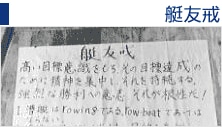 艇友戒
艇友戒
高い目標意識をもち、その目標達成の
ために精神を集中し、それを持続する。
強烈な勝利への意志、それが根性だ!
1. 漕艇はrowingである、row-boatであっては
ならない。